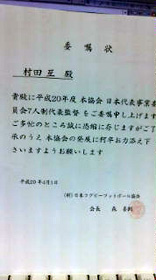 委嘱状
村田 亙 殿
貴殿に平成20年度 本協会 日本代表事業委
員会7人制代表監督 をご委嘱申し上げます
ご多忙のところ誠に恐縮に存じますがご了
承のうえ 本協会の発展に何卒お力添え下
さいますようお願いします
平成20年4月1日
(財)日本ラグビーフットボール協会
会長 森